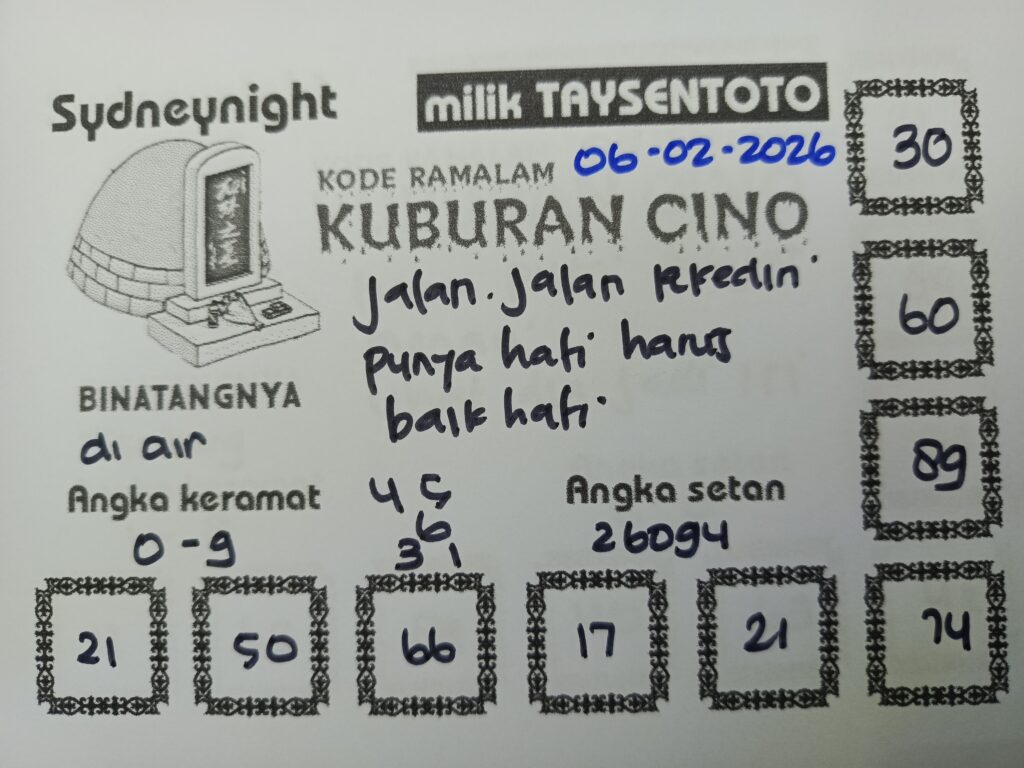 Sydneynight
milik TAYSENTOTO
06-02-2026
KODE RAMALAM
KUBURAN CINO
Jalan. Jalan kekediri
punya hati harus
baik hati.
BINATANGNYA
di air
Angka keramat
0-9
45
6
31
Angka setan
26094
30
60
89
21
50
66
17
21
74